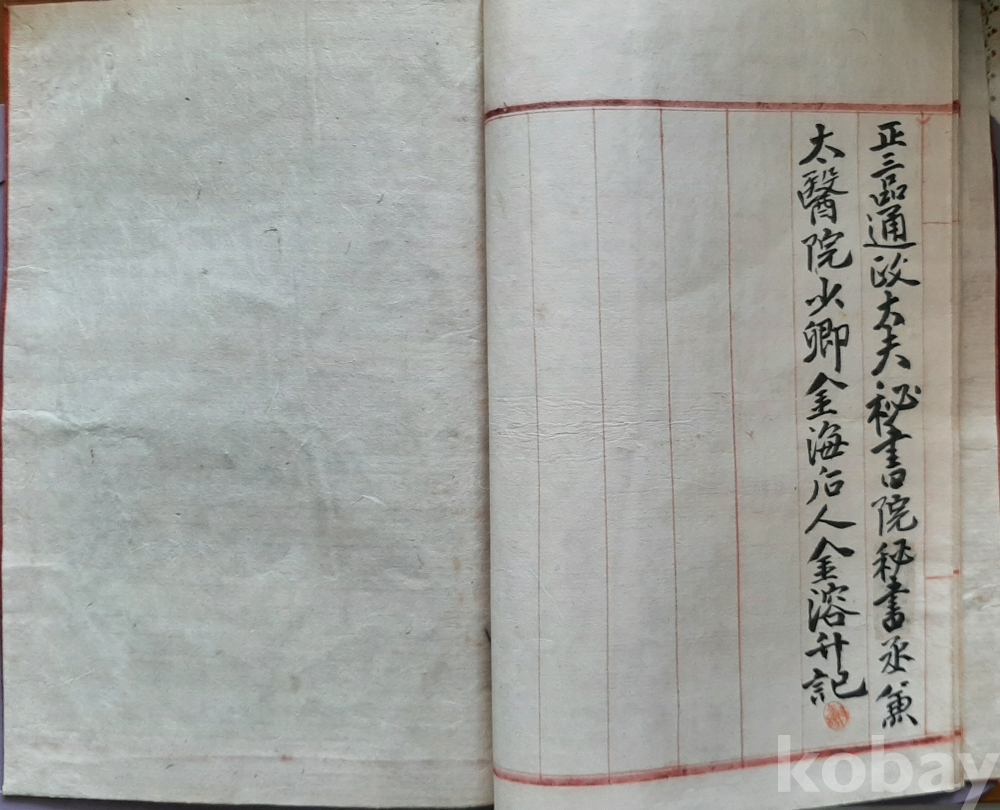 正三品通政大夫秘書院秘書丞兼
太醫院少卿金海后人金溶升記
kobay